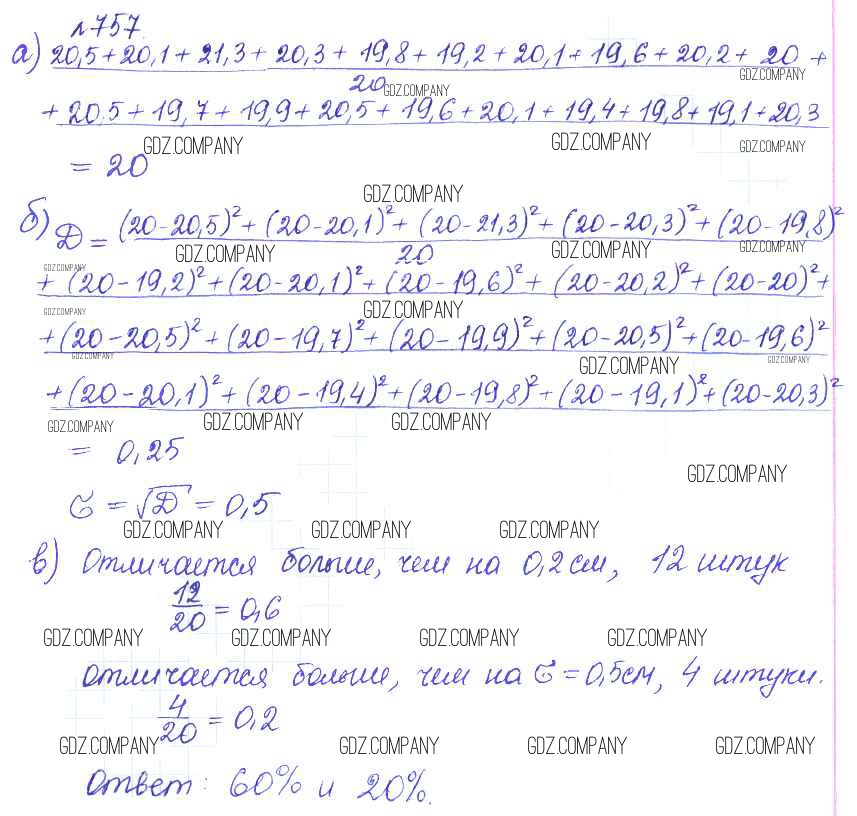 №757.
а) 20,5 + 20,1 + 21,3 + 20,3 + 19,8 + 19,2 + 20,1 + 19,6 + 20,2 + 20 +
20
GDZ.COMPANY GDZ.COMPANY
+ 20.5 + 19,7 + 19,9 + 20,5 + 19,6 + 20,1 + 19,4 + 19,8 + 19,1 + 20,3
GDZ.COMPANY GDZ.COMPANY GDZ.COMPANY
= 20
GDZ.COMPANY
б) D = (20-20,5)² + (20-20,1)² + (20-21,3)² + (20-20,3)² + (20-19,8)²
20
GDZ.COMPANY GDZ.COMPANY GDZ.COMPANY
GDZ.COMPANY
+ (20-19,2)² + (20-20,1)² + (20-19,6)² + (20-20,2)² + (20-20)² +
GDZ.COMPANY GDZ.COMPANY
+ (20-20,5)² + (20-19,7)² + (20-19,9)² + (20-20,5)² + (20-19,6)²
GDZ.COMPANY GDZ.COMPANY GDZ.COMPANY
+ (20-20,1)² + (20-19,4)² + (20-19,8)² + (20-19,1)² + (20-20,3)²
GDZ.COMPANY GDZ.COMPANY GDZ.COMPANY
= 0,25
GDZ.COMPANY
σ = √D = 0,5
GDZ.COMPANY GDZ.COMPANY GDZ.COMPANY
в) Отличается больше, чем на 0,2 см, 12 штук
12
20 = 0,6
GDZ.COMPANY GDZ.COMPANY GDZ.COMPANY GDZ.COMPANY
Отличается больше, чем на σ = 0,5 см, 4 штуки.
4
20 = 0,2
GDZ.COMPANY GDZ.COMPANY GDZ.COMPANY GDZ.COMPANY
Ответ: 60% и 20%.